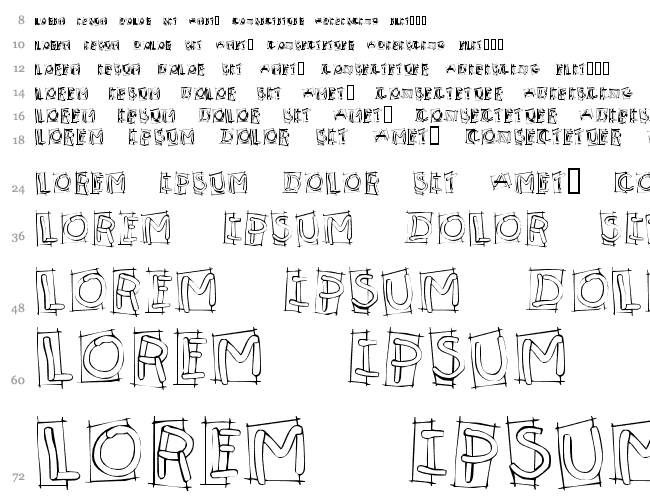 8 LOREM IPSUM DOLOR SIT AMET▯ CONSECTETUER ADIPISCING ELIT▯▯▯
10 LOREM IPSUM DOLOR SIT AMET▯ CONSECTETUER ADIPISCING ELIT▯▯▯
12 LOREM IPSUM DOLOR SIT AMET▯ CONSECTETUER ADIPISCING ELIT▯▯▯
14 LOREM IPSUM DOLOR SIT AMET▯ CONSECTETUER ADIPISCING
16 LOREM IPSUM DOLOR SIT AMET▯ CONSECTETUER ADIPIS
18 LOREM IPSUM DOLOR SIT AMET▯ CONSECTETUER
24 LOREM IPSUM DOLOR SIT AMET▯ CO
36 LOREM IPSUM DOLOR SI
48 LOREM IPSUM DOL
60 LOREM IPSUM
72 LOREM IPSUM